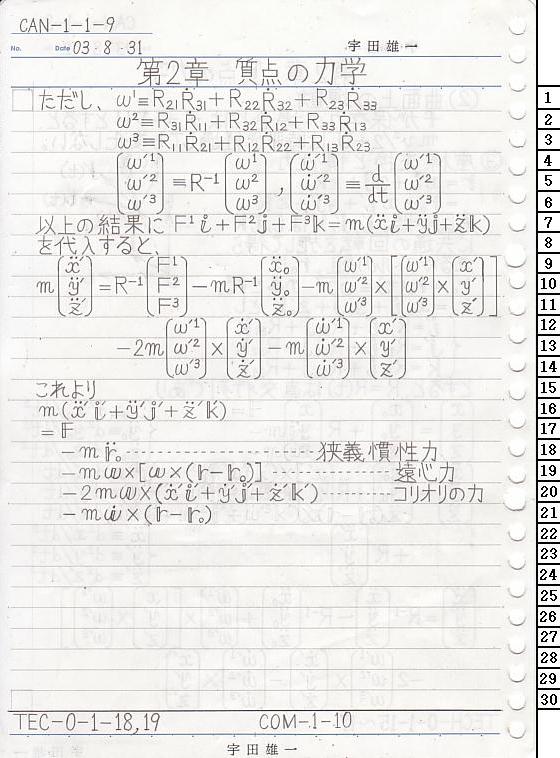 CAN-1-1-9
No. Date 03・8・31 宇田雄一
第2章 質点の力学
ただし、ω¹≡R₂₁Ṙ₃₁+R₂₂Ṙ₃₂+R₂₃Ṙ₃₃
ω²≡R₃₁Ṙ₁₁+R₃₂Ṙ₁₂+R₃₃Ṙ₁₃
ω³≡R₁₁Ṙ₂₁+R₁₂Ṙ₂₂+R₁₃Ṙ₂₃
(ω'¹ ω'² ω'³)≡R⁻¹(ω¹ ω² ω³), (ω̇'¹ ω̇'² ω̇'³)≡d/dt(ω'¹ ω'² ω'³)
以上の結果に F¹𝕚+F²𝕛+F³𝕜=m(ẍ𝕚+ÿ𝕛+z̈𝕜)
を代入すると、
m(ẍ' ÿ' z̈')=R⁻¹(F¹ F² F³)−mR⁻¹(ẍ₀ ÿ₀ z̈₀)−m(ω'¹ ω'² ω'³)×[(ω'¹ ω'² ω'³)×(x' y' z')]
−2m(ω'¹ ω'² ω'³)×(ẋ' ẏ' ż')−m(ω̇'¹ ω̇'² ω̇'³)×(x' y' z')
これより
m(ẍ'𝕚'+ÿ'𝕛'+z̈'𝕜')
=𝔽
−m𝕣̈₀ 狭義慣性力
−m𝕨×[𝕨×(𝕣−𝕣₀)] 遠心力
−2m𝕨×(ẋ'𝕚'+ẏ'𝕛'+ż'𝕜') コリオリの力
−m𝕨̇×(𝕣−𝕣₀)
TEC-0-1-18,19 COM-1-10
宇田雄一
1
2
3
4
5
6
7
8
9
10
11
12
13
14
15
16
17
18
19
20
21
22
23
24
25
26
27
28
29
30